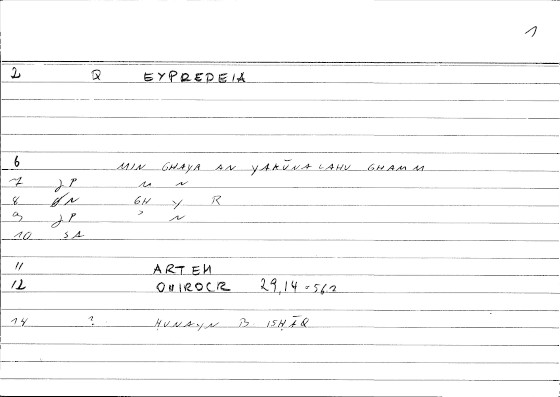 1
2 Q EYPREDEIA
6 MIN GHAYR AN YAKŪNA LAHU GHAMM
7 JP M N
8 N GH Y R
9 JP ' N
10 SA
11 ARTEM
12 ONIROCR 29,14 = 562
14 ? ḤUNAYN B ISḤĀQ